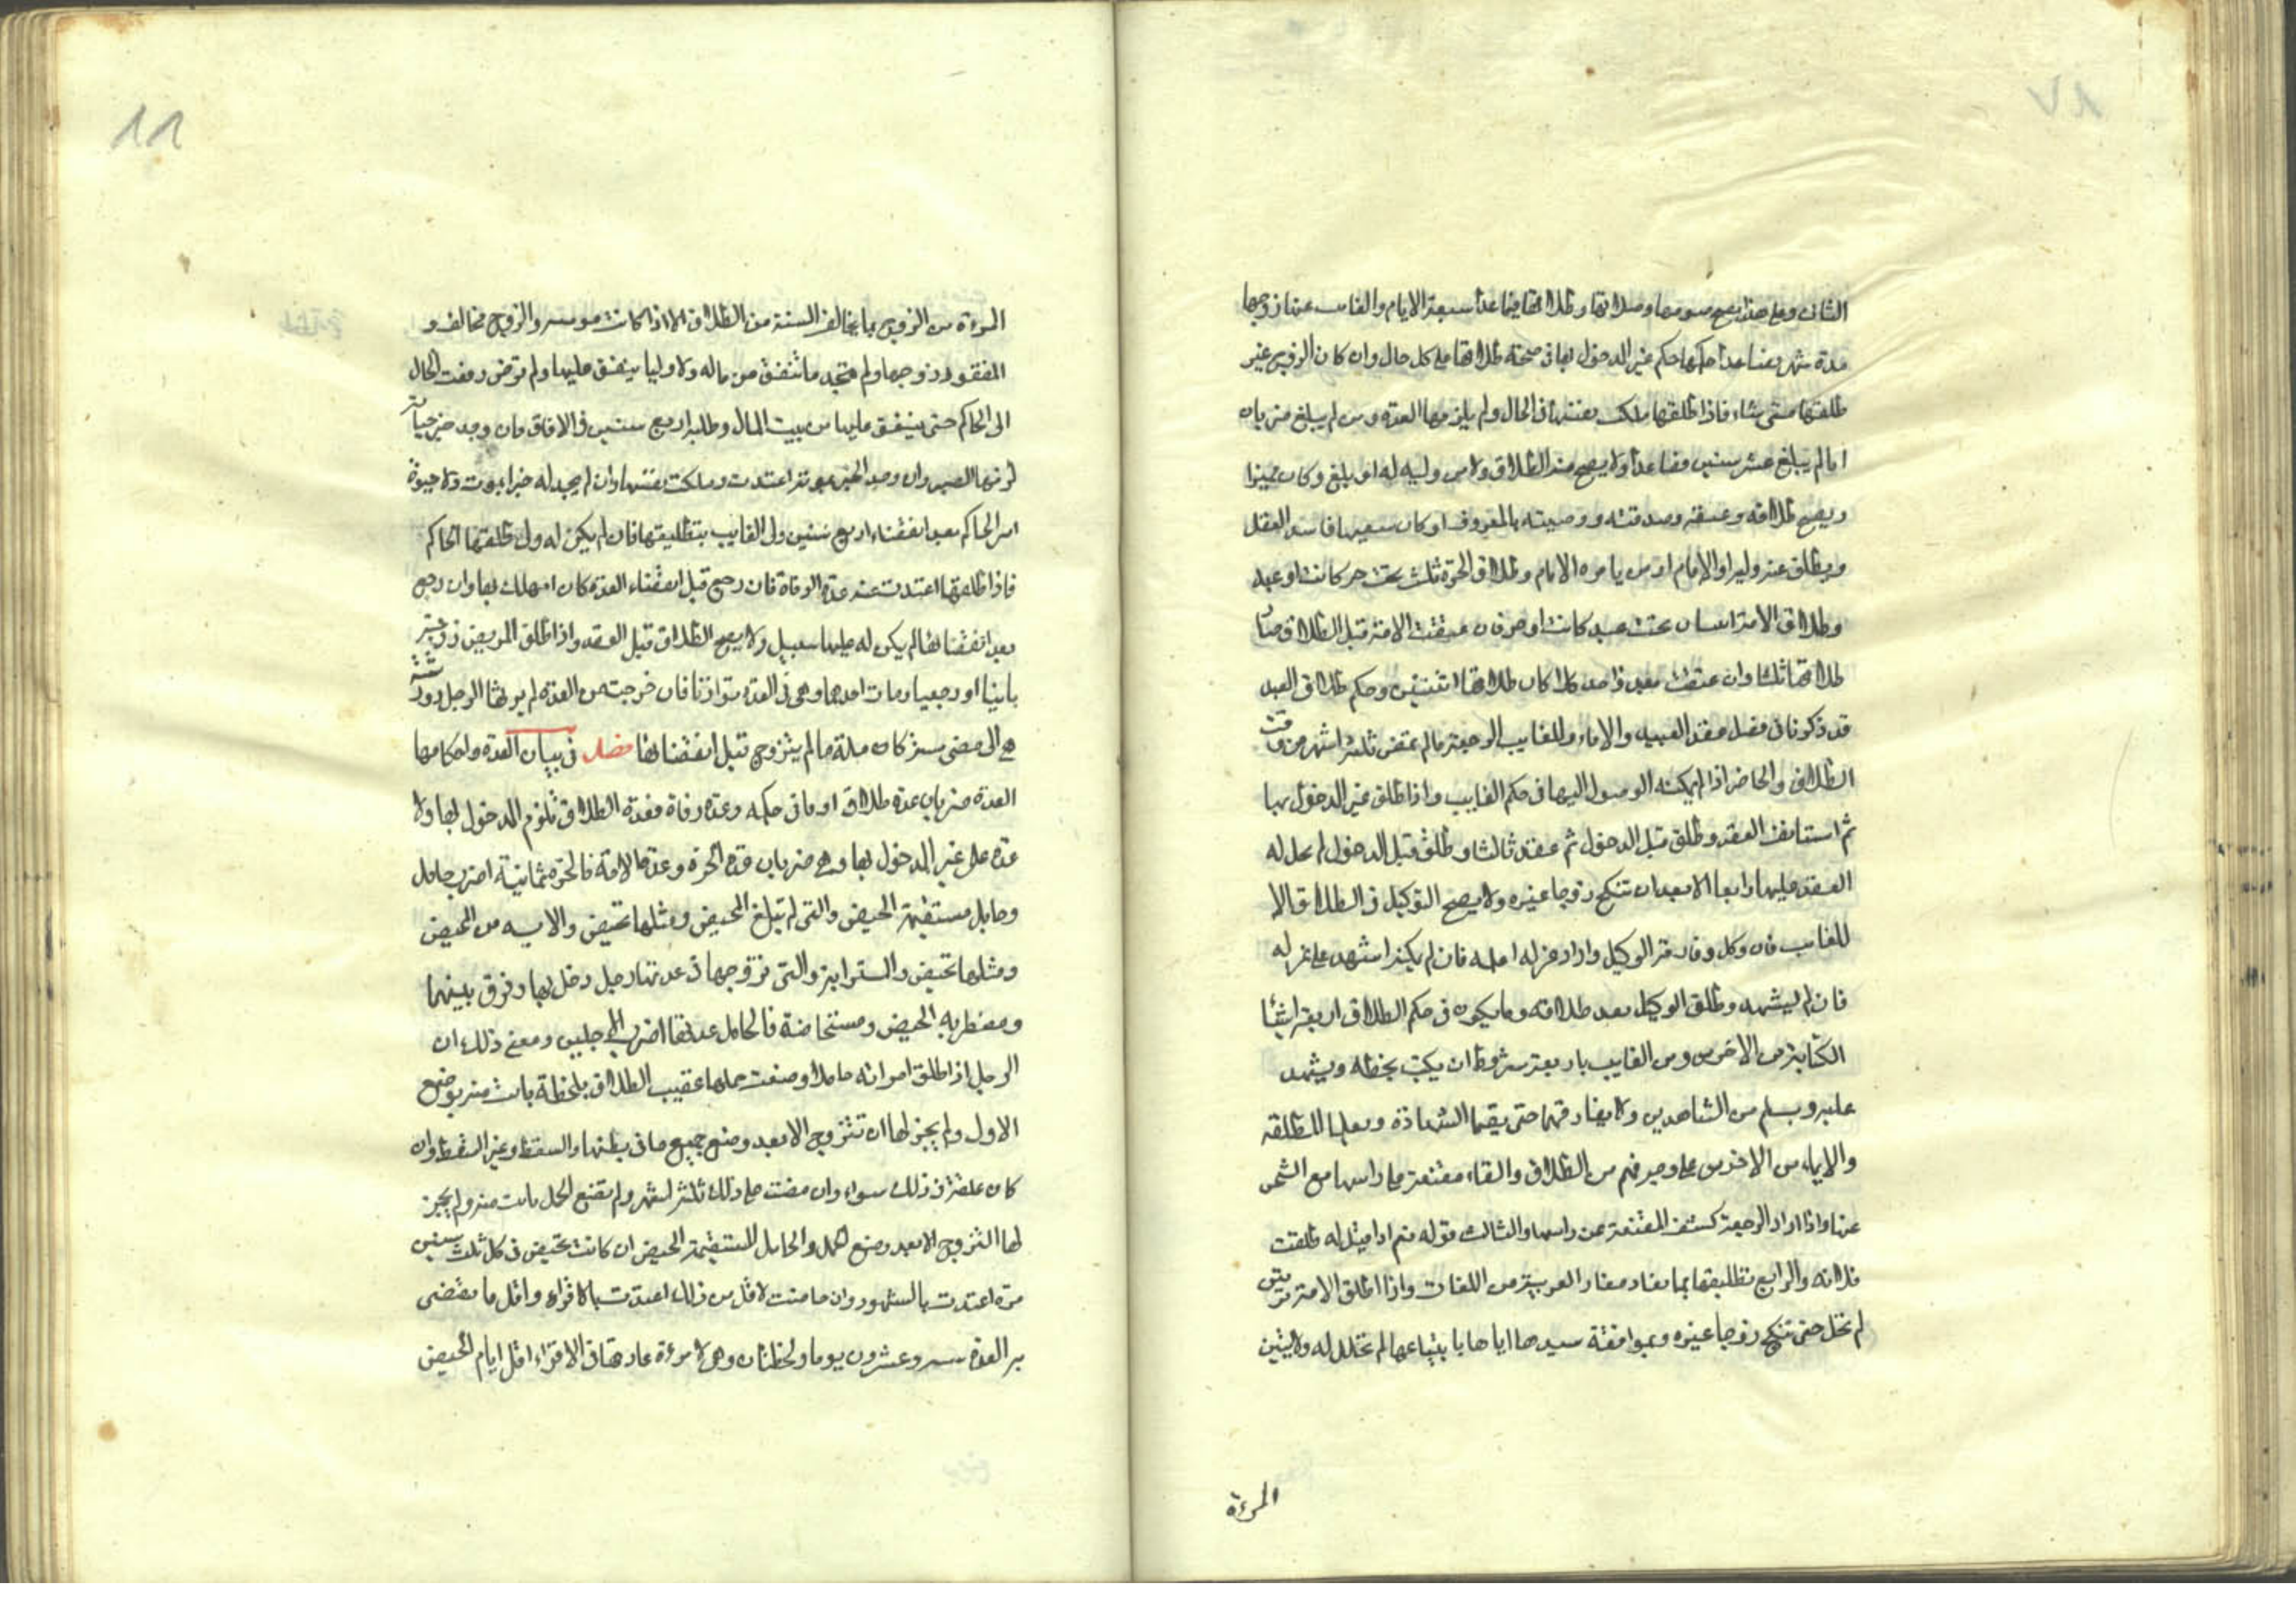 الثانى وعلى هذا يصح صومها وصلاتها وطلاقها فيما عدا سبعة الايام والغائب عنها زوجها
مدة شهر فصاعدا حكمها حكم غير المدخول بها فى صحة طلاقها على كل حال وان كان الزوج غير
طلقها متى شاء فاذا طلقها ملكت نفسها فى الحال ولم يلزمها العدة ومن لم يبلغ ضربان
اما لم يبلغ عشر سنين فصاعدا ولا يصح منه الطلاق ولا من وليه له او بلغ وكان مميزا
ويصح طلاقه وعتقه وصدقته ووصيته بالمعروف او كان سفيها فاسد العقل
ويطلق عنه وليه او الامام او من يامره الامام وطلاق الحرة ثلث تحت حر كانت او عبد
وطلاق الامة اثنتان تحت عبد كانت او حر فان عتقت الامة قبل الطلاق صار
طلاقها ثلثا وان عتقت بعد واحد كان طلاقها اثنتين وحكم طلاق العبد
قد ذكرنا فى فصل عقد العبيد والاماء وللغايب الرجعة ما لم تمض ثلثة اشهر من وقت
الطلاق والحاضر اذا لم يمكنه الوصول اليها فى حكم الغايب واذا طلق غير المدخول بها
ثم استانف العقد وطلق قبل الدخول ثم عقد ثالثا وطلق قبل الدخول لم يحل له
العقد عليها رابعا الا بعد ان تنكح زوجا غيره ولا يصح التوكيل فى الطلاق الا
للغائب فان وكل وفارقه الوكيل واراد عزله اعلمه فان لم يمكنه اشهد على عزله
فان لم يشهد وطلق الوكيل بعد طلاقه وما يكون فى حكم الطلاق اربعة اشيا
الكتابة من الاخرس ومن الغايب باربعة شروط ان يكتب بخطه ويشهد
عليه ويسلم من الشاهدين ولا يفارقهما حتى يقيما الشهادة ويعلما المطلقة
والايماء من الاخرس على وجه يفهم من الطلاق والقاء مقنعة على راسها مع التنحى
عنها واذا اراد الرجعة كشف المقنعة عن راسها والثالث قوله نعم اذا قيل له طلقت
فلانة والرابع تطليقها بما يفاد مفاد العربية من اللغات واذا طلق الامة مرتين
لم تحل حتى تنكح زوجا غيره وبموافقة سيدها اياها بابتياعها لم تحلل له وللاثنين
المرءة
المرءة من الزوج ما يخالف السنة من الطلاق الا اذا كانت مؤمنة والزوج مخالف و
المفقود زوجها ولم تجد ما تنفق من ماله ولا وليا ينفق عليها ولم ترض رفعت الحال
الى الحاكم حتى ينفق عليها من بيت المال وطلبه اربع سنين فى الافاق فان وجد خبر حياته
لزمها الصبر وان وجد الخبر بموته اعتدت وملكت نفسها وان لم يجد له خبرا بموت ولا حيوة
امر الحاكم بعد انقضاء اربع سنين ولى الغايب بتطليقها فان لم يكن له ولى طلقها الحاكم
فاذا طلقها اعتدت عنه عدة الوفاة فان رجع قبل انقضاء العدة كان املك بها وان رجع
بعد انقضائها لم يكن له عليها سبيل ولا يصح الطلاق قبل العقد واذا طلق المريض زوجته
باينا او رجعيا ومات احدهما وهى فى العدة توارثا فان خرجت من العدة لم يرثها الرجل وورثته
هى الى مضى سنة كاملة ما لم يتزوج قبل انقضائها فصل فى بيان العدة واحكامها
العدة ضربان عدة طلاق او ما فى حكمه وعدة وفاة فعدة الطلاق تلزم المدخول بها ولا
عدة على غير المدخول بها وهى ضربان عدة الحرة وعدة الامة فالحرة ثمانية اضرب حامل
وحايل مستقيمة الحيض والتى لم تبلغ المحيض ومثلها تحيض والايسه من المحيض
ومثلها تحيض والمسترابة والتى تزوجها فى عدتها رجل دخل بها وفرق بينهما
ومضطربة الحيض ومستحاضة فالحامل عدتها اقرب الاجلين ومعنى ذلك ان
الرجل اذا طلق امراته حاملا وضعت حملها عقيب الطلاق بلحظة بانت منه بوضع
الاول ولم يجز لها ان تتزوج الا بعد وضع جميع ما فى بطنها والسقط وغير السقط وان
كان علقة فى ذلك سواء وان مضت على ذلك ثلثة اشهر ولم تضع الحمل بانت منه ولم يجز
لها التزوج الا بعد وضع الحمل والحايل المستقيمة الحيض ان كانت تحيض فى كل ثلث سنين
مرة اعتدت بالشهور وان حاضت لاقل من ذلك اعتدت بالاقراء واقل ما تقضى
به العدة ستة وعشرون يوما ولحظتان وهى لامرءة عادتها فى الاقراء اقل ايام الحيض